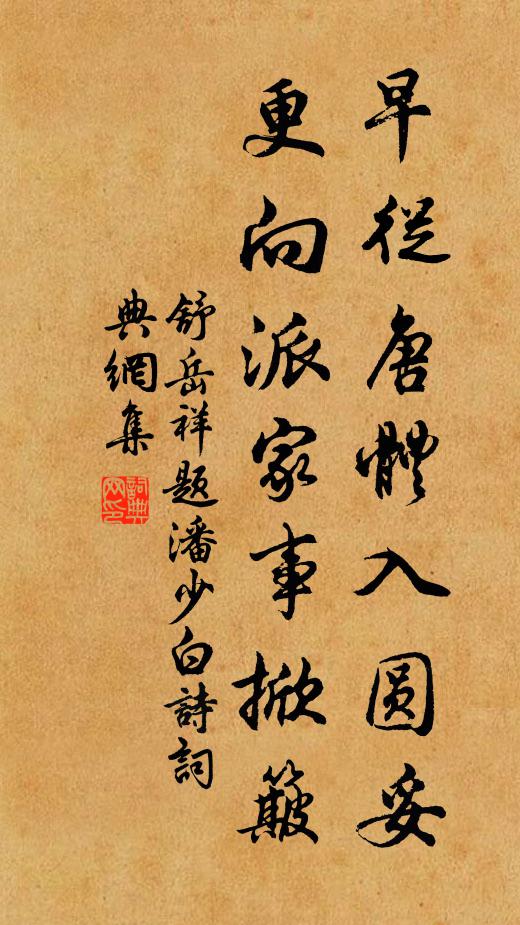 早從唐體入圓妥
更向派家事掀簸
舒岳祥題潘少白詩詞
典網集
詞典
网印